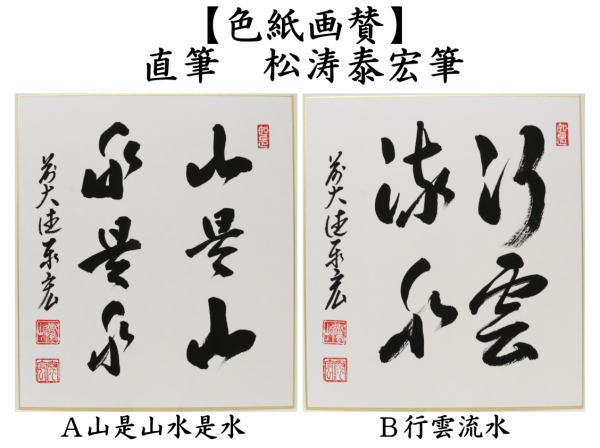 【色紙画賛】
直筆　松涛泰宏筆
山是山
水是水
前大徳泰宏
行雲
流水
前大徳泰宏
A山是山水是水
B行雲流水